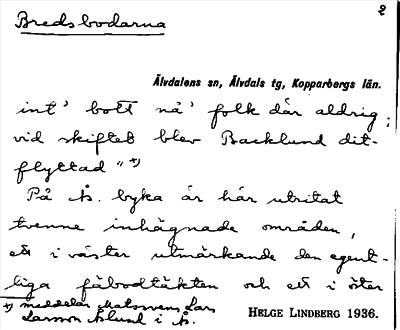 Bredsbodarna
2
Älvdalens sn, Älvdals tg, Kopparbergs län.
int' bott nå' folk där aldrig;
vid skiftet blev Backlund dit-
flyttad" *)
På k. byka är här utritat
tvenne inhägnade områden,
ett i väster utmärkande den egent-
liga fäbodtäkten och ett i öster
*) meddelar Matsvens Lars
Larsson Åslund i Å.
HELGE LINDBERG 1936.